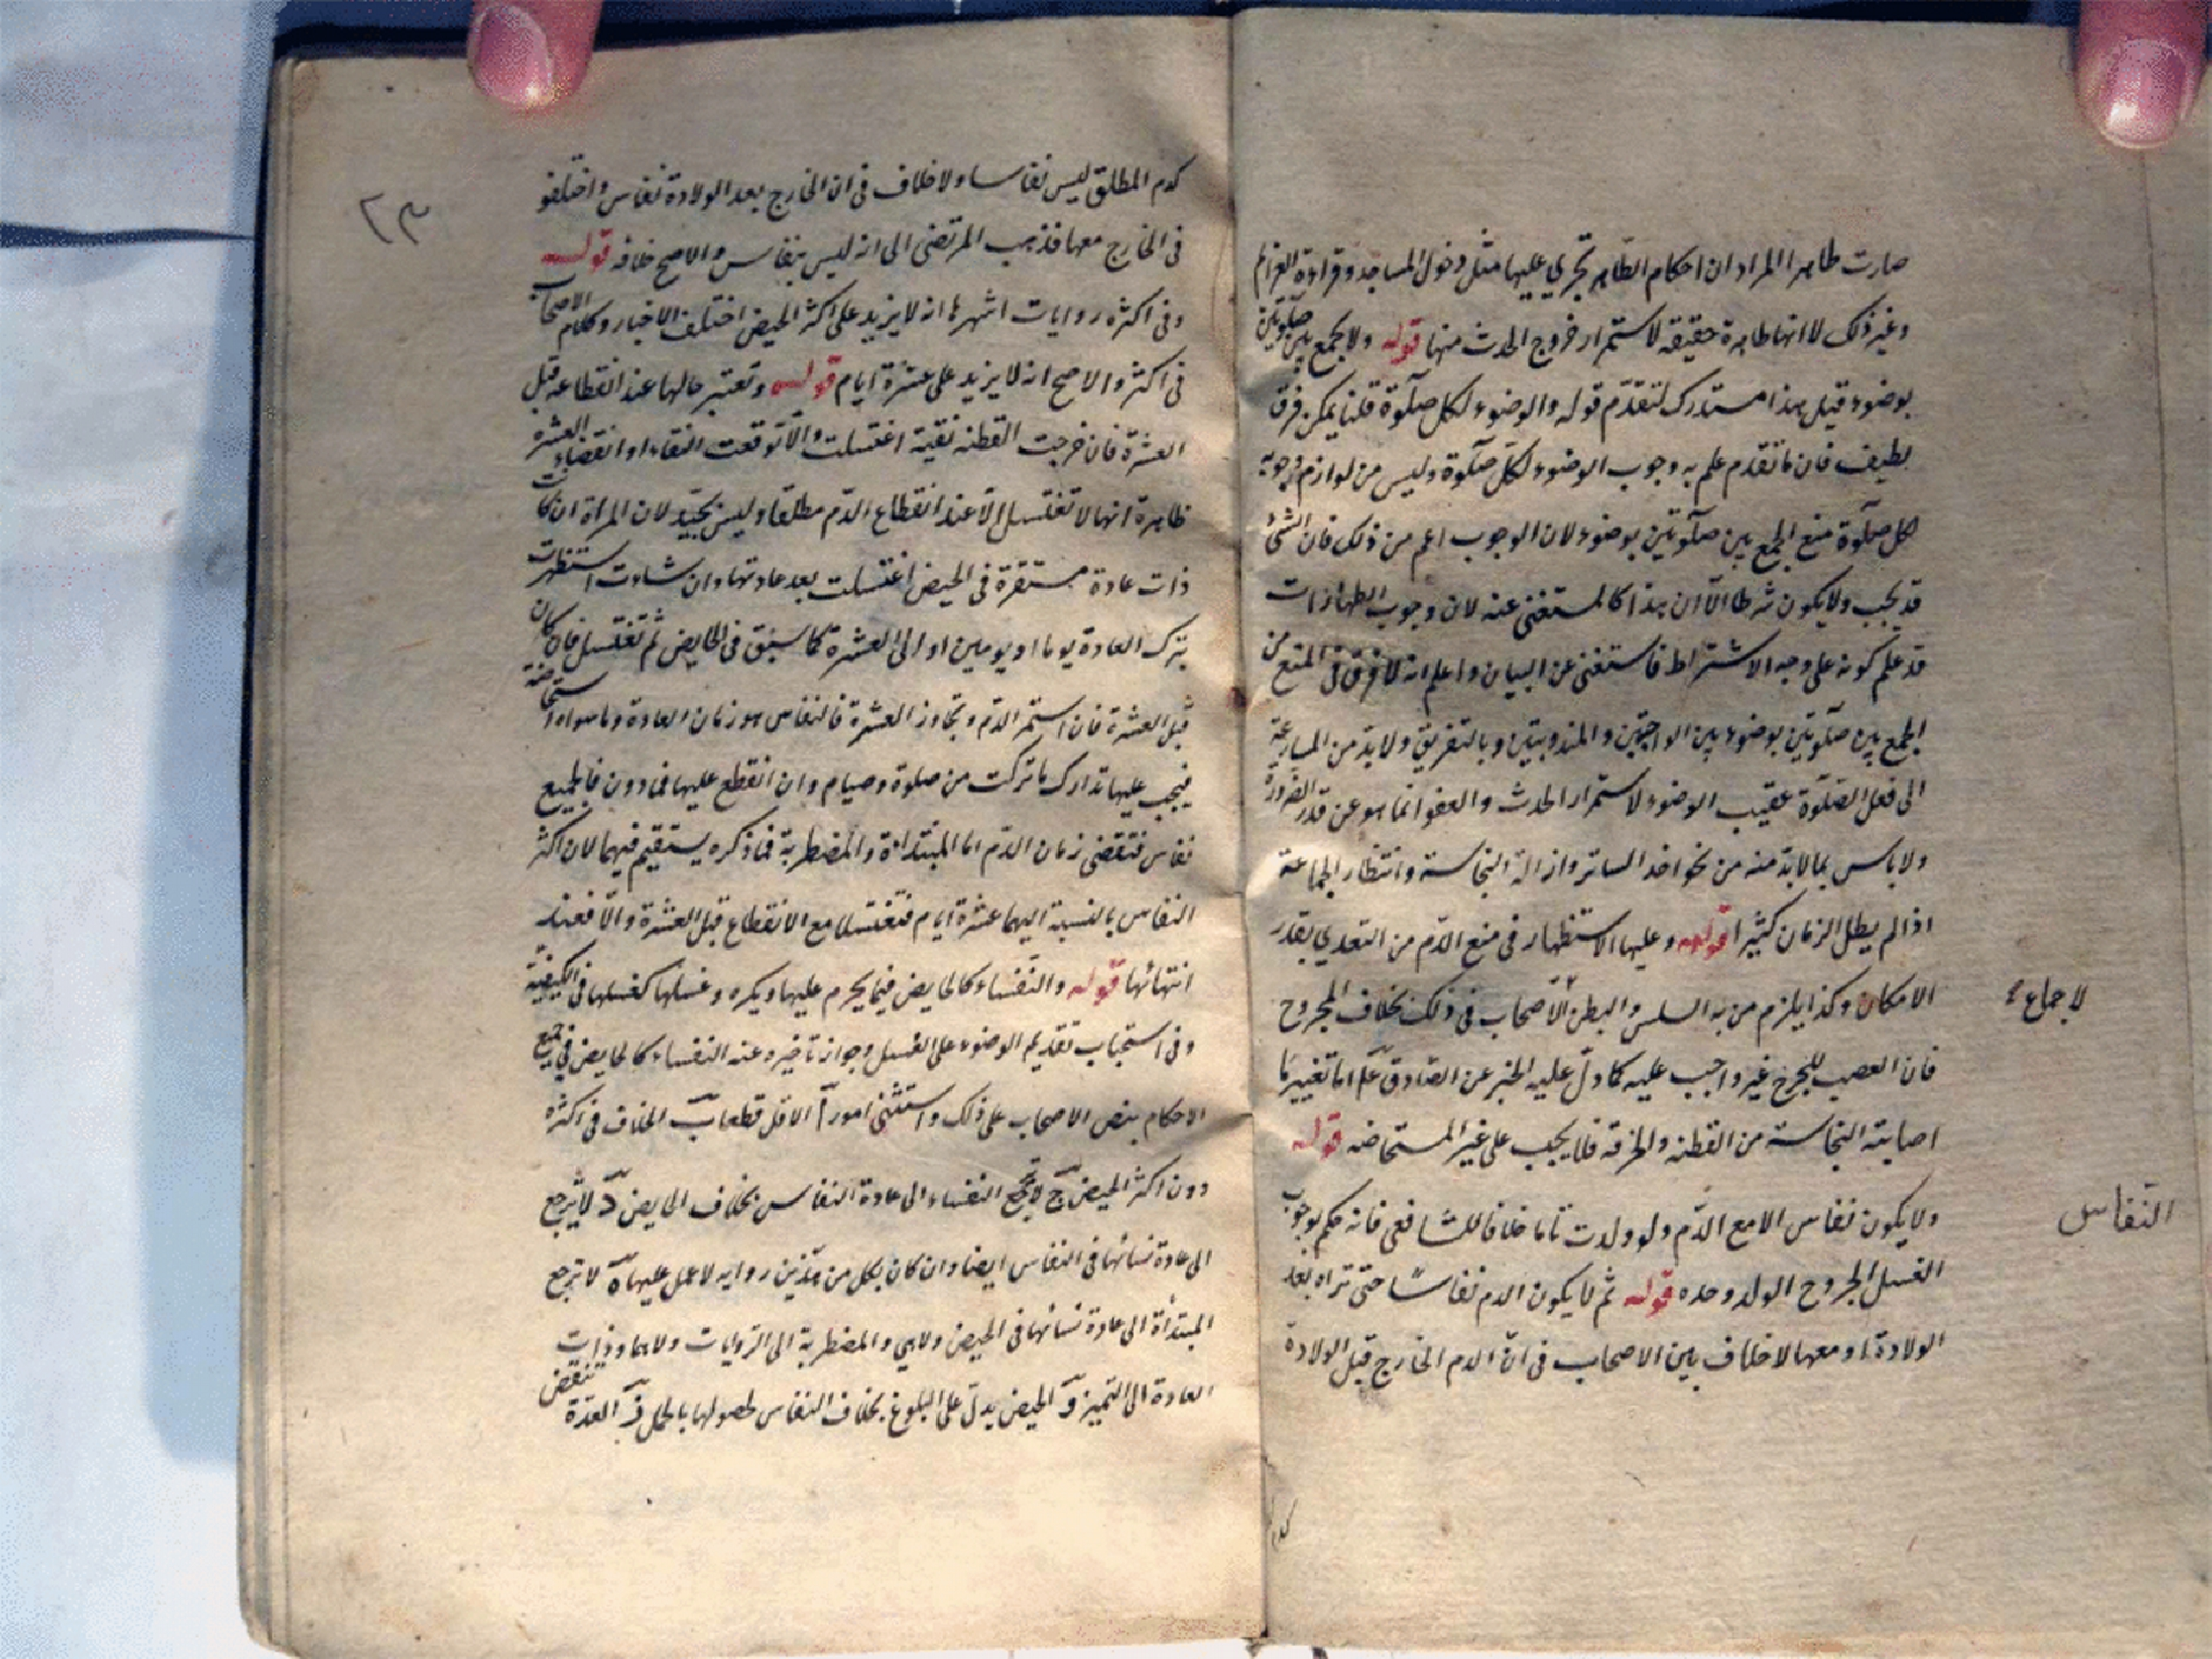 صارت طاهرا المراد ان احكام الطاهر تجري عليها مثل دخول المساجد وقراءة العزائم
وغير ذلك لا انها طاهرة حقيقه لاستمرار خروج الحدث منها قوله ولا تجمع بين صلوتين
بوضوء قيل هذا مستدرك لتقدّم قوله والوضوء لكل صلوة قلنا يمكن فرق
لطيف فان ما تقدم علم به وجوب الوضوء لكلّ صلوة وليس من لوازم وجوبه
لكل صلوة منع الجمع بين صلوتين بوضوء لان الوجوب اعم من ذلك فان الشئ
قد يجب ولا يكون شرطا الّا ان هذا كالمستغنى عنه لان وجوب الطهارات
قد علم كونه على وجه الاشتراط فاستغنى عن البيان واعلم انه لا فرق في المنع من
الجمع بين صلوتين بوضوء بين الواجبتين والمندوبتين وبالتفريق ولا بدّ من المسارعة
الى فعل الصّلوة عقيب الوضوء لاستمرار الحدث والعفو انما هو عن قدر الضرورة
ولا باس بما لا بدّ منه من نحو اخذ الساتر وازالة النجاسة وانتظار الجماعة
اذا لم يطل الزمان كثيرا قوله وعليها الاستظهار في منع الدّم من التعدي بقدر
الامكان وكذا يلزم من به السلس والبطن الاصحاب في ذلك بخلاف المجروح
لاجماع
فان العصب للجرح غير واجب عليه كما دلّ عليه الخبر عن الصّادق عم اما تغيير ما
اصابته النجاسة من القطنه والخرقه فلا يجب على غير المستحاضه قوله
ولا يكون نفاس الا مع الدّم ولو ولدت تاما خلافا للشافعى فانه حكم بوجوب
النّفاس
الغسل لخروج الولد وحده قوله ثم لا يكون الدم نفاسًا حتى تراه بعد
الولادة او معها لا خلاف بين الاصحاب في انّ الدم الخارج قبل الولادة
كدم المطلق ليس نفاسا ولا خلاف فى ان الخارج بعد الولادة نفاس واختلفو
٢٣
فى الخارج معها فذهب المرتضى الى انه ليس بنفاس والاصح خلافه قوله
وفى اكثره روايات اشهرها انه لا يزيد على اكثر الحيض اختلف الاخبار وكلام الاصحاب
فى اكثره والاصح انه لا يزيد على عشرة ايام قوله وتعتبر حالها عند انقطاعه قبل
العشرة فان خرجت القطنه نقية اغتسلت والّا توقعت النقاء او انقضاء العشره
ظاهره انها لا تغتسل الّا عند انقطاع الدّم مطلقا وليس بجيّد لان المراة ان كانت
ذات عادة مستقرة فى الحيض اغتسلت بعد عادتها وان شاءت استظهرت
بترك العادة يوما او يومين او الى العشرة كما سبق فى الحايض ثم تغتسل فان كان
قبل العشرة فان استمر الدّم وتجاوز العشرة فالنفاس هو زمان العادة وما سواه استحاضة
فيجب عليها تدارك ما تركت من صلوة وصيام وان انقطع عليها فما دون فالجميع
نفاس فتقضى زمان الدّم اما المبتداة والمضطربة فما ذكره يستقيم فيهما لان اكثر
النفاس بالنسبة اليهما عشرة ايام فتغتسل مع الانقطاع قبل العشرة والّا فعند
انتهائها قوله والنّفساء كالحايض فيما يحرم عليها ويكره وغسلها كغسلها فى الكيفيّة
وفى استحباب تقديم الوضوء على الغسل وجواز تاخيره عنه النفساء كالحايض في جميع
الاحكام بنص الاصحاب على ذلك واستثنى امور آ الاقل قطعا ب الخلاف فى اكثره
دون اكثر الحيض ج لا ترجع النفساء الى عادة النفاس بخلاف الحايض د لا ترجع
الى عادة نسائها فى النفاس ايضا وان كان بكل من هذين روايه لا عمل عليها ه لا ترجع
المبتدأة الى عادة نسائها فى الحيض والمضطربة الى الرّوايات ولا هما وذات
العادة الى التميز و الحيض يدلّ على البلوغ بخلاف النفاس لحصولها بالحمل ز العدّة تنقض